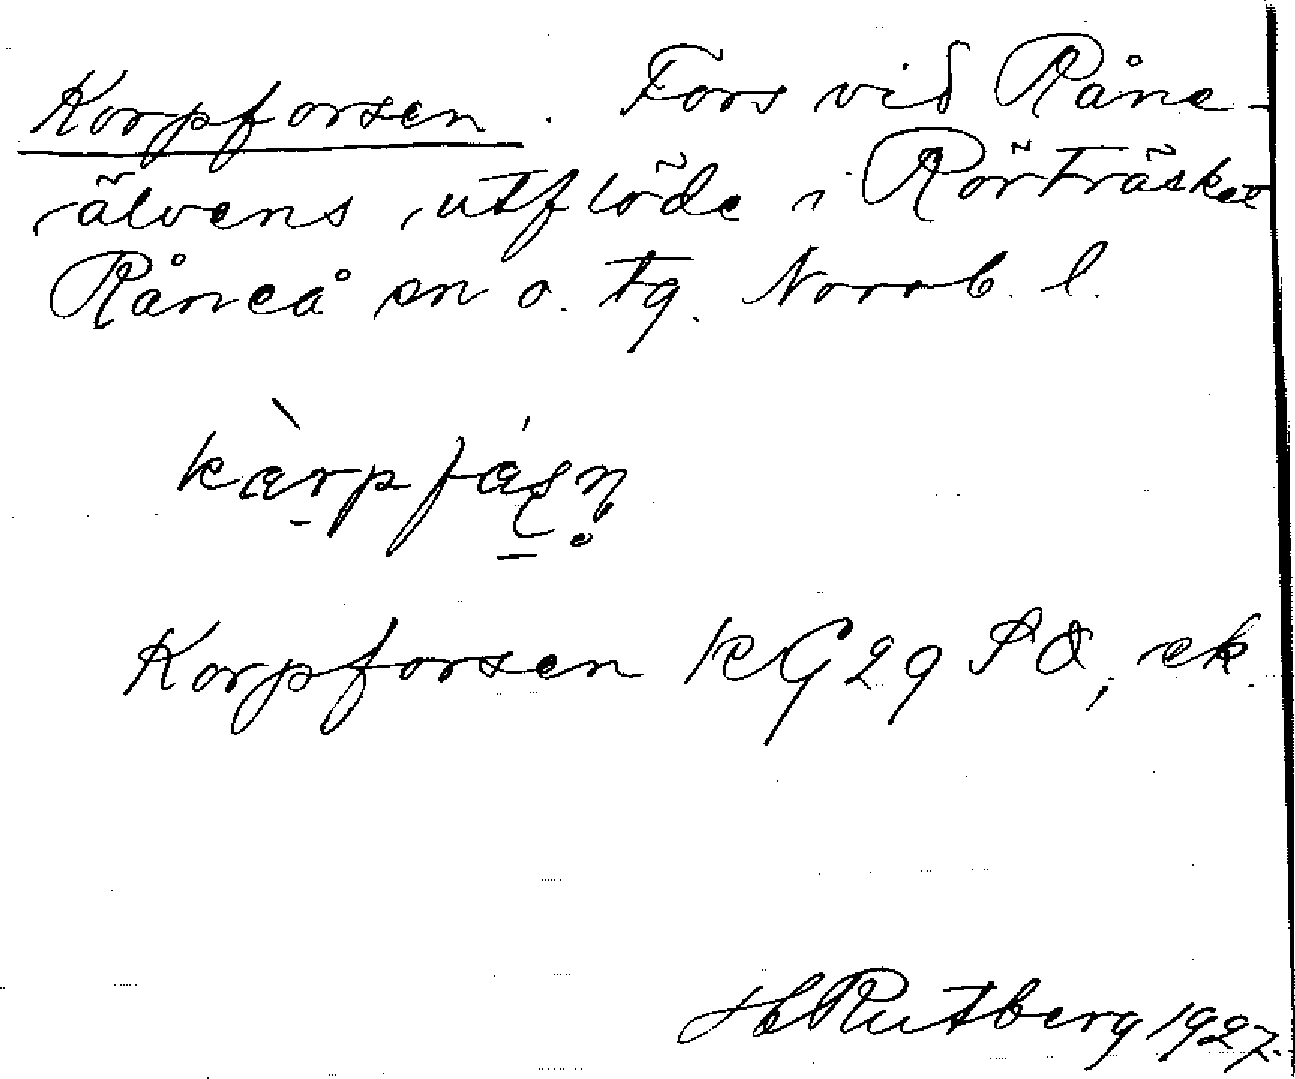 Korpforsen. Fors vid Råne-
älvens utflöde i Rörträsket
Råneå sn o. tg. Norrb. l.
kàrpfásn̥
Korpforsen KG 29 SO, ek.
H Rutberg 1927.